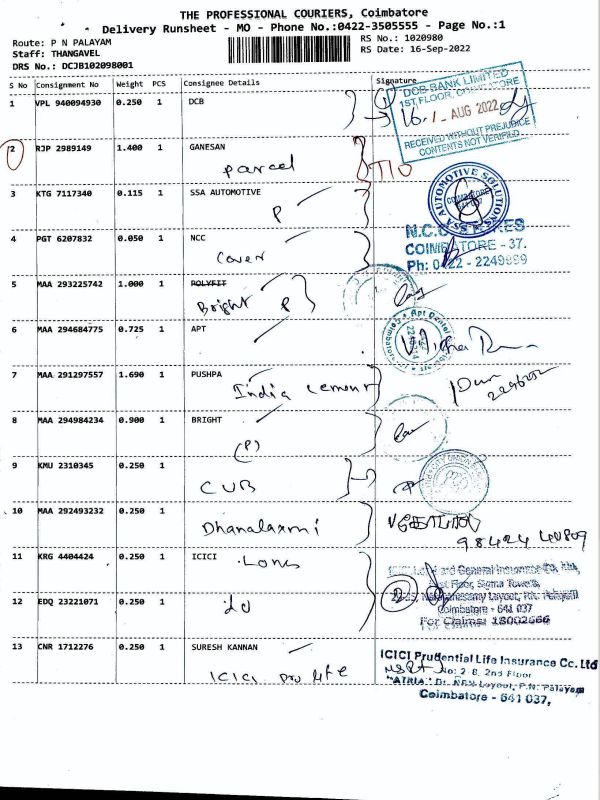 THE PROFESSIONAL COURIERS, Coimbatore
Delivery Runsheet - MO - Phone No.:0422-3505555 - Page No.:1
Route: P N PALAYAM
RS No.: 1020980
Staff: THANGAVEL
RS Date: 16-Sep-2022
DRS No.: DCJB102098001
S No Consignment No Weight PCS Consignee Details Signature
1 VPL 940094930 0.250 1 DCB
DCB BANK LIMITED
1ST FLOOR, COIMBATORE
AUG 2022
RECEIVED WITHOUT PREJUDICE
CONTENTS NOT VERIFIED
2 RJP 2989149 1.400 1 GANESAN
parcel
3 KTG 7117340 0.115 1 SSA AUTOMOTIVE
P
SSA AUTOMOTIVE SOLUTIONS
4 PGT 6207832 0.050 1 NCC
Cover
COIMBATORE - 37.
Ph: 0422 - 2249999
5 MAA 293225742 1.000 1 POLYFIT
Bright P
6 MAA 294684775 0.725 1 APT
Apt Dental
7 MAA 291297557 1.690 1 PUSHPA
India cement
8 MAA 294984234 0.900 1 BRIGHT
(P)
9 KMU 2310345 0.250 1
CUB
10 MAA 292493232 0.250 1
Dhanalaxmi
11 KRG 4404424 0.250 1 ICICI
Lom
General Insurance Co. Ltd,
Floor, Sigma Towers,
12 EDQ 23221071 0.250 1
2
Coimbatore - 641 037
For Claims: 18002666
13 CNR 1712276 0.250 1 SURESH KANNAN
ICICI pro life
ICICI Prudential Life Insurance Co. Ltd
No: 2-8, 2nd Floor
"ATRIA" Dr. NRN Layout, P.N. Palayam
Coimbatore - 641 037,